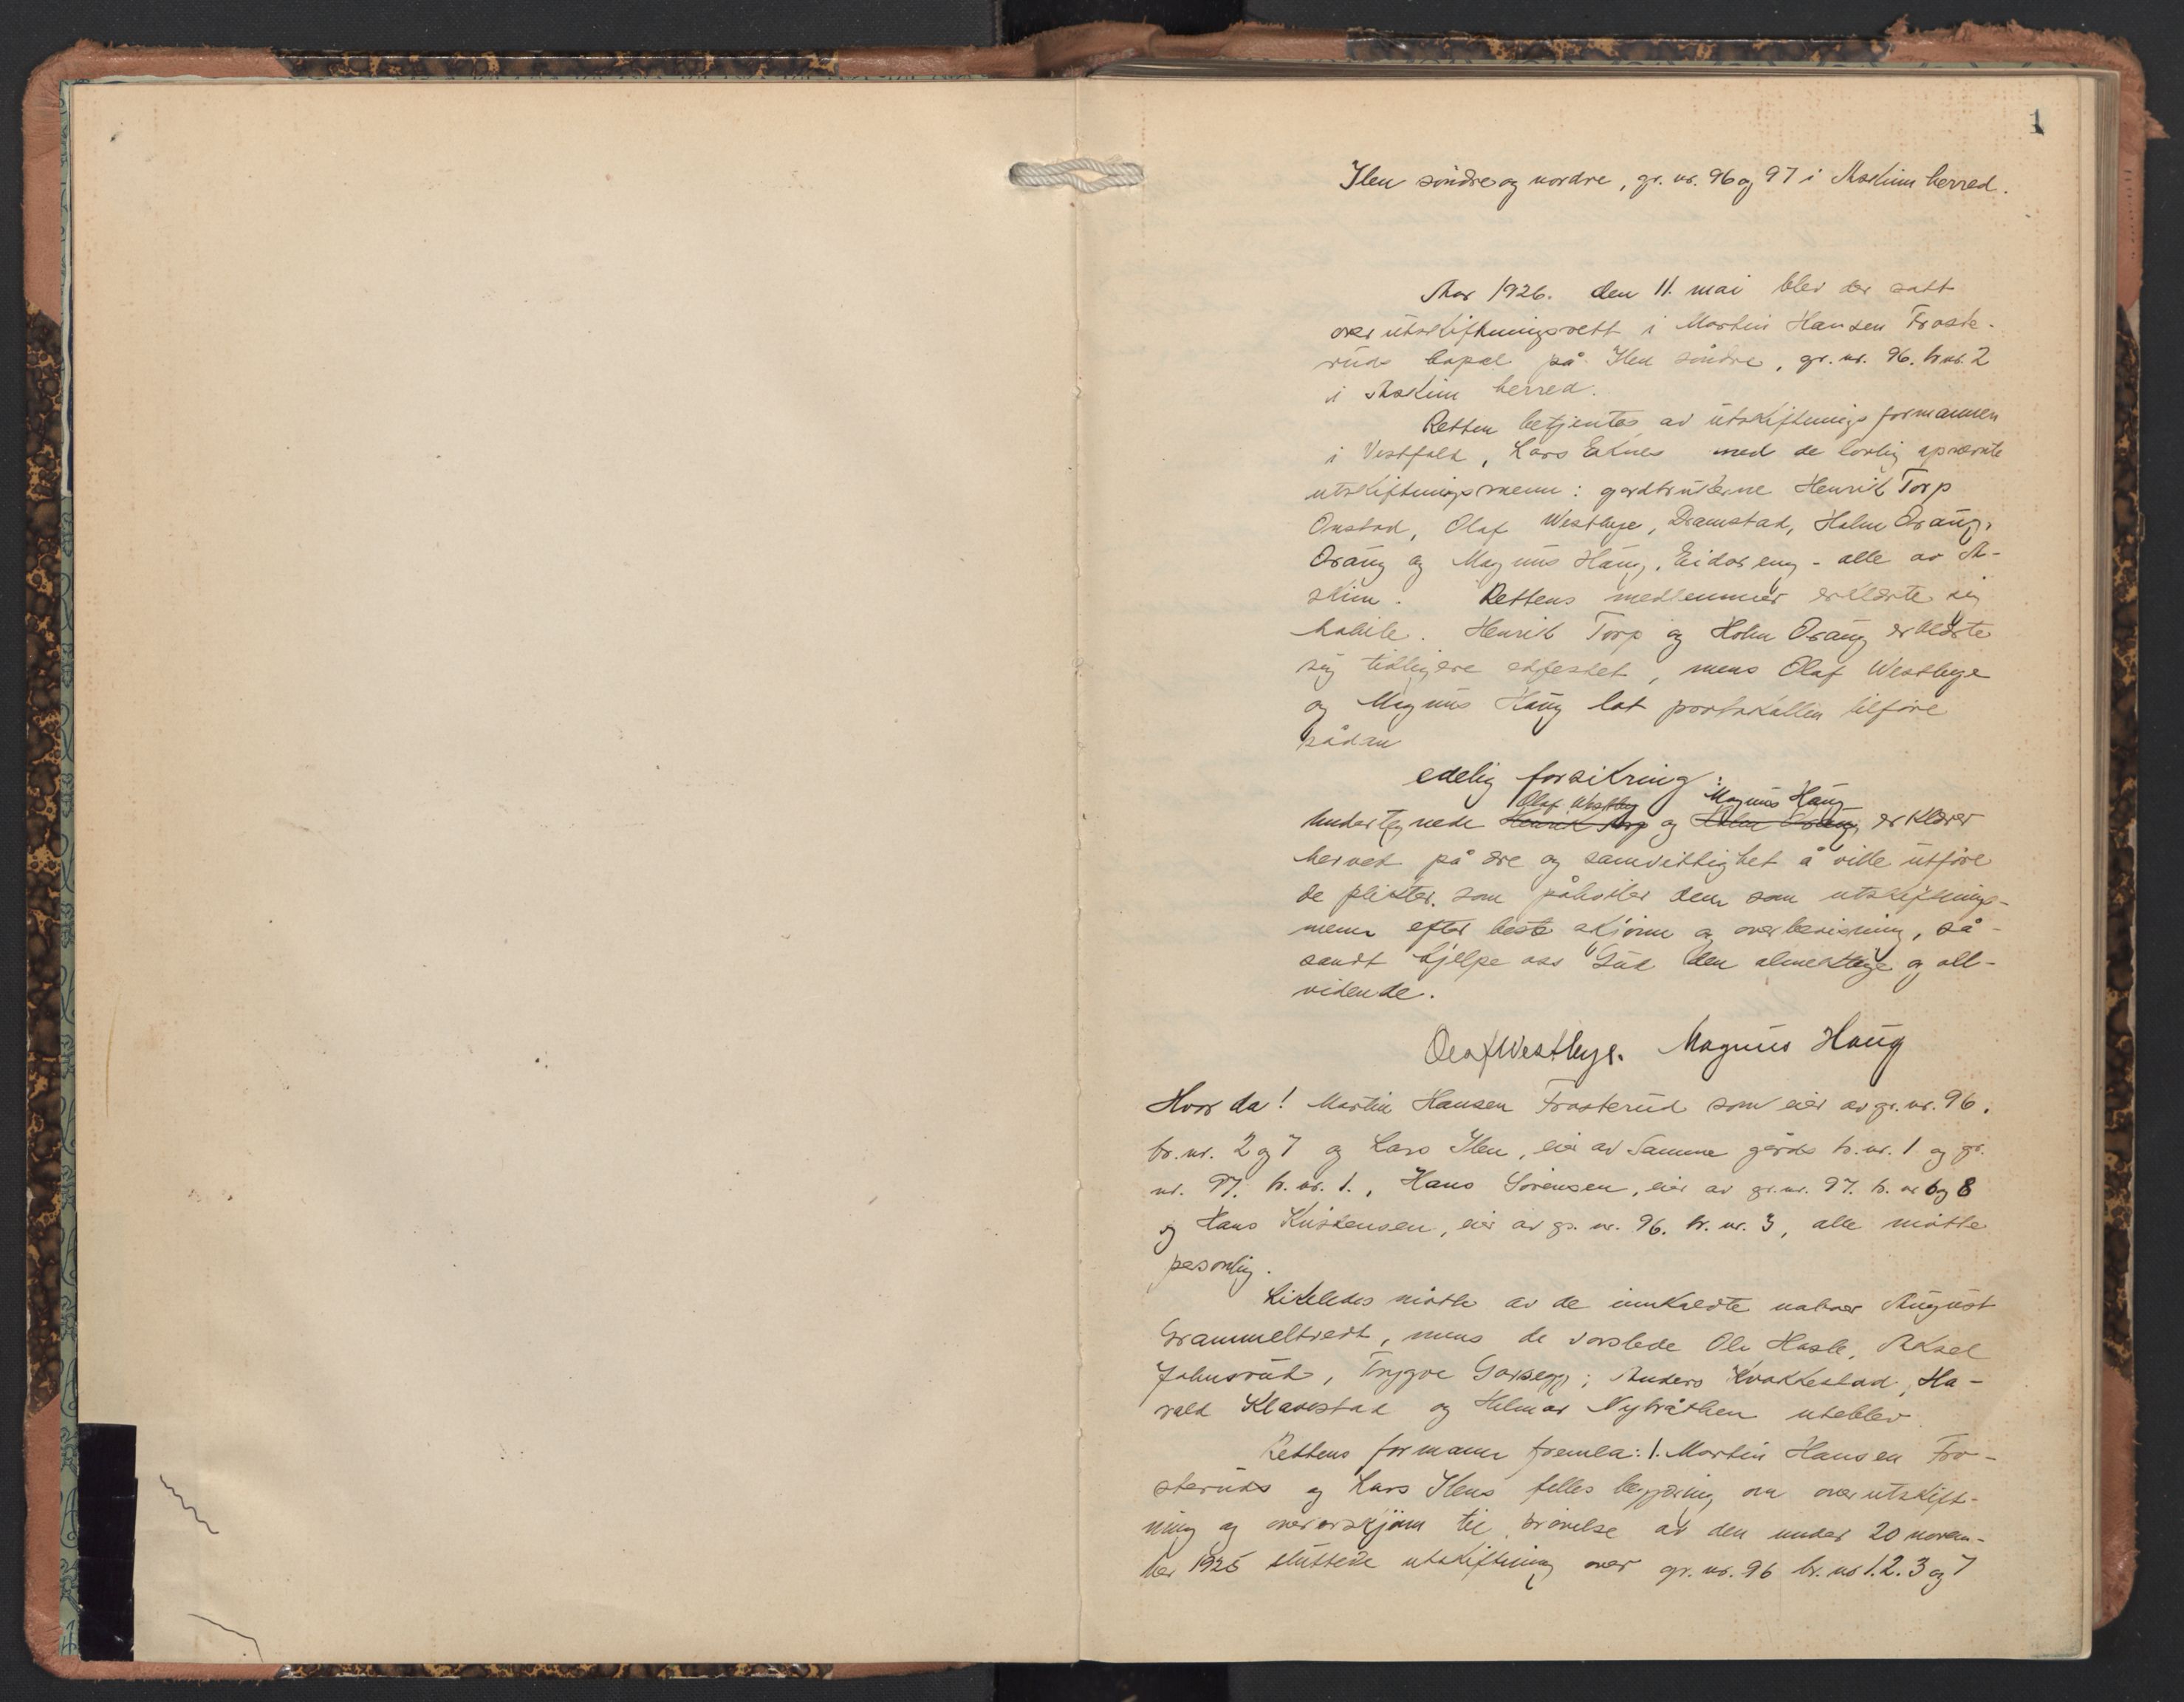 1
Ilen söndre og nordre, gr. nr. 96 og 97 i Askim herred.
Aar 1926. den 11. mai blev der satt
overutskiftningsrett i Martin Hansen Froste-
ruds bopel på Ilen söndre, gr. nr. 96. br.nr. 2
i Askim herred.
Retten betjentes av utskiftningsformannen
i Vestfold, Lars Eknes med de lovlig opnevnte
utskiftningsmenn: gardbrukerne Henrik Torp
Onstad, Olaf Westbye, Dramstad, Holm Oraug,
Oraug og Magnus Haug, Eidareng - alle av A-
skim. Rettens medlemmer erklærte sig
habile. Henrik Torp og Holm Oraug erklærte
sig tidligere edfestet, mens Olaf Westbye
og Magnus Haug lot protokollen tilföre
sådan
edelig forsikring:
Olaf Westby Magnus Haug
Undertegnede Henrik Torp og Holm Oraug erklærer
herved på ære og samvittighet å ville utföre
de plikter, som påhviler dem som utskiftnings-
menn efter beste skjönn og overbevisning, så-
sandt hjelpe oss Gud den almektige og all-
vidende.
Olaf Westbye. Magnus Haug
Hvor da! Martin Hansen Frosterud som eier av gr. nr. 96.
br. nr. 2 og 7 og Lars Ilen, eier av samme gårds br. nr. 1 og gr.
nr. 97. br. nr. 1., Hans Sörensen, eier av gr. nr. 97. br. nr 6 og 8
og Hans Kristensen, eier av gr. nr. 96. br. nr. 3, alle mötte
personlig.
Likeledes mötte av de innkaldte naboer August
Grammeltvedt, mens de varslede Ole Hasle, Aksel
Johnsrud, Trygve Garsegg, Anders Kvakkestad, Ha-
rald Klavestad og Helmar Nybråthen uteblev.
Rettens formann fremla: 1. Martin Hansen Fro-
steruds og Lars Ilens felles begjæring om overutskift-
ning og overorskjönn til prövelse av den under 20 novem-
ber 1925 sluttede utskiftning over gr. nr. 96 br. nr 1. 2. 3 og 7